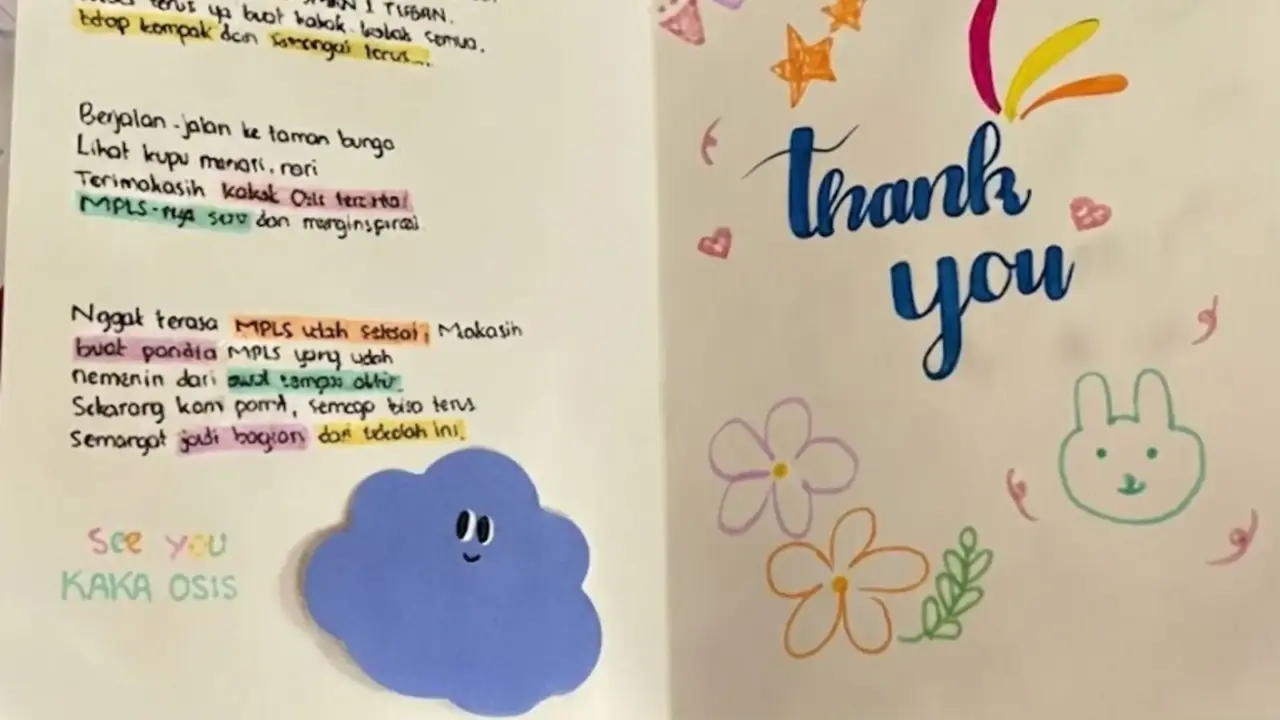 terus ya buat kakak-kakak semua.
tetap kompak dan semangat terus...
Berjalan-jalan ke taman bunga
Lihat kupu menari, nari
Terimakasih kakak Osis tercinta!
MPLS-nya seru dan menginspirasi
Nggak terasa MPLS udah selesai, Makasih
buat panitia MPLS yang udah
nemenin dari awal sampai akhir.
Sekarang kami pamit, semoga bisa terus
Semangat jadi bagian dari sekolah ini.
See you
KAKA OSIS
Thank
you